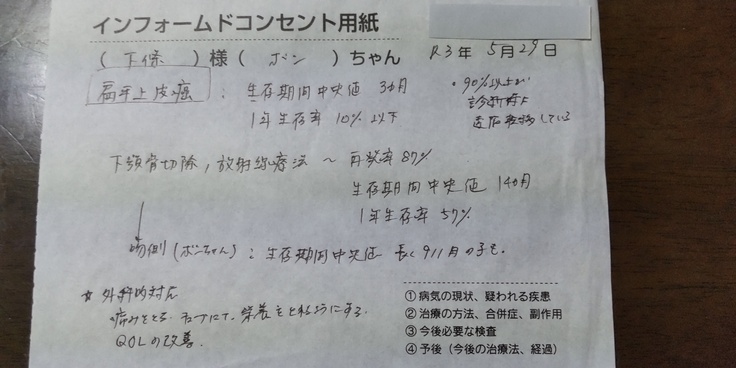 インフォームドコンセント用紙
(下條)様(ボン)ちゃん R3年 5月29日
扁平上皮癌 : 生存期間中央値 3ヶ月
1年生存率 10%以下
・90%以上が
診断時に
転移している
下顎骨切除, 放射線療法 〜 再発率 87%
生存期間中央値 14ヶ月
1年生存率 57%
(ボンちゃん) : 生存期間中央値 長く 911月の子も.
☆ 外科的対応
痛みをとる. にて. 栄養をとれるようにする.
QOLの改善.
① 病気の現状、疑われる疾患
② 治療の方法、合併症、副作用
③ 今後必要な検査
④ 予後(今後の治療法、経過)